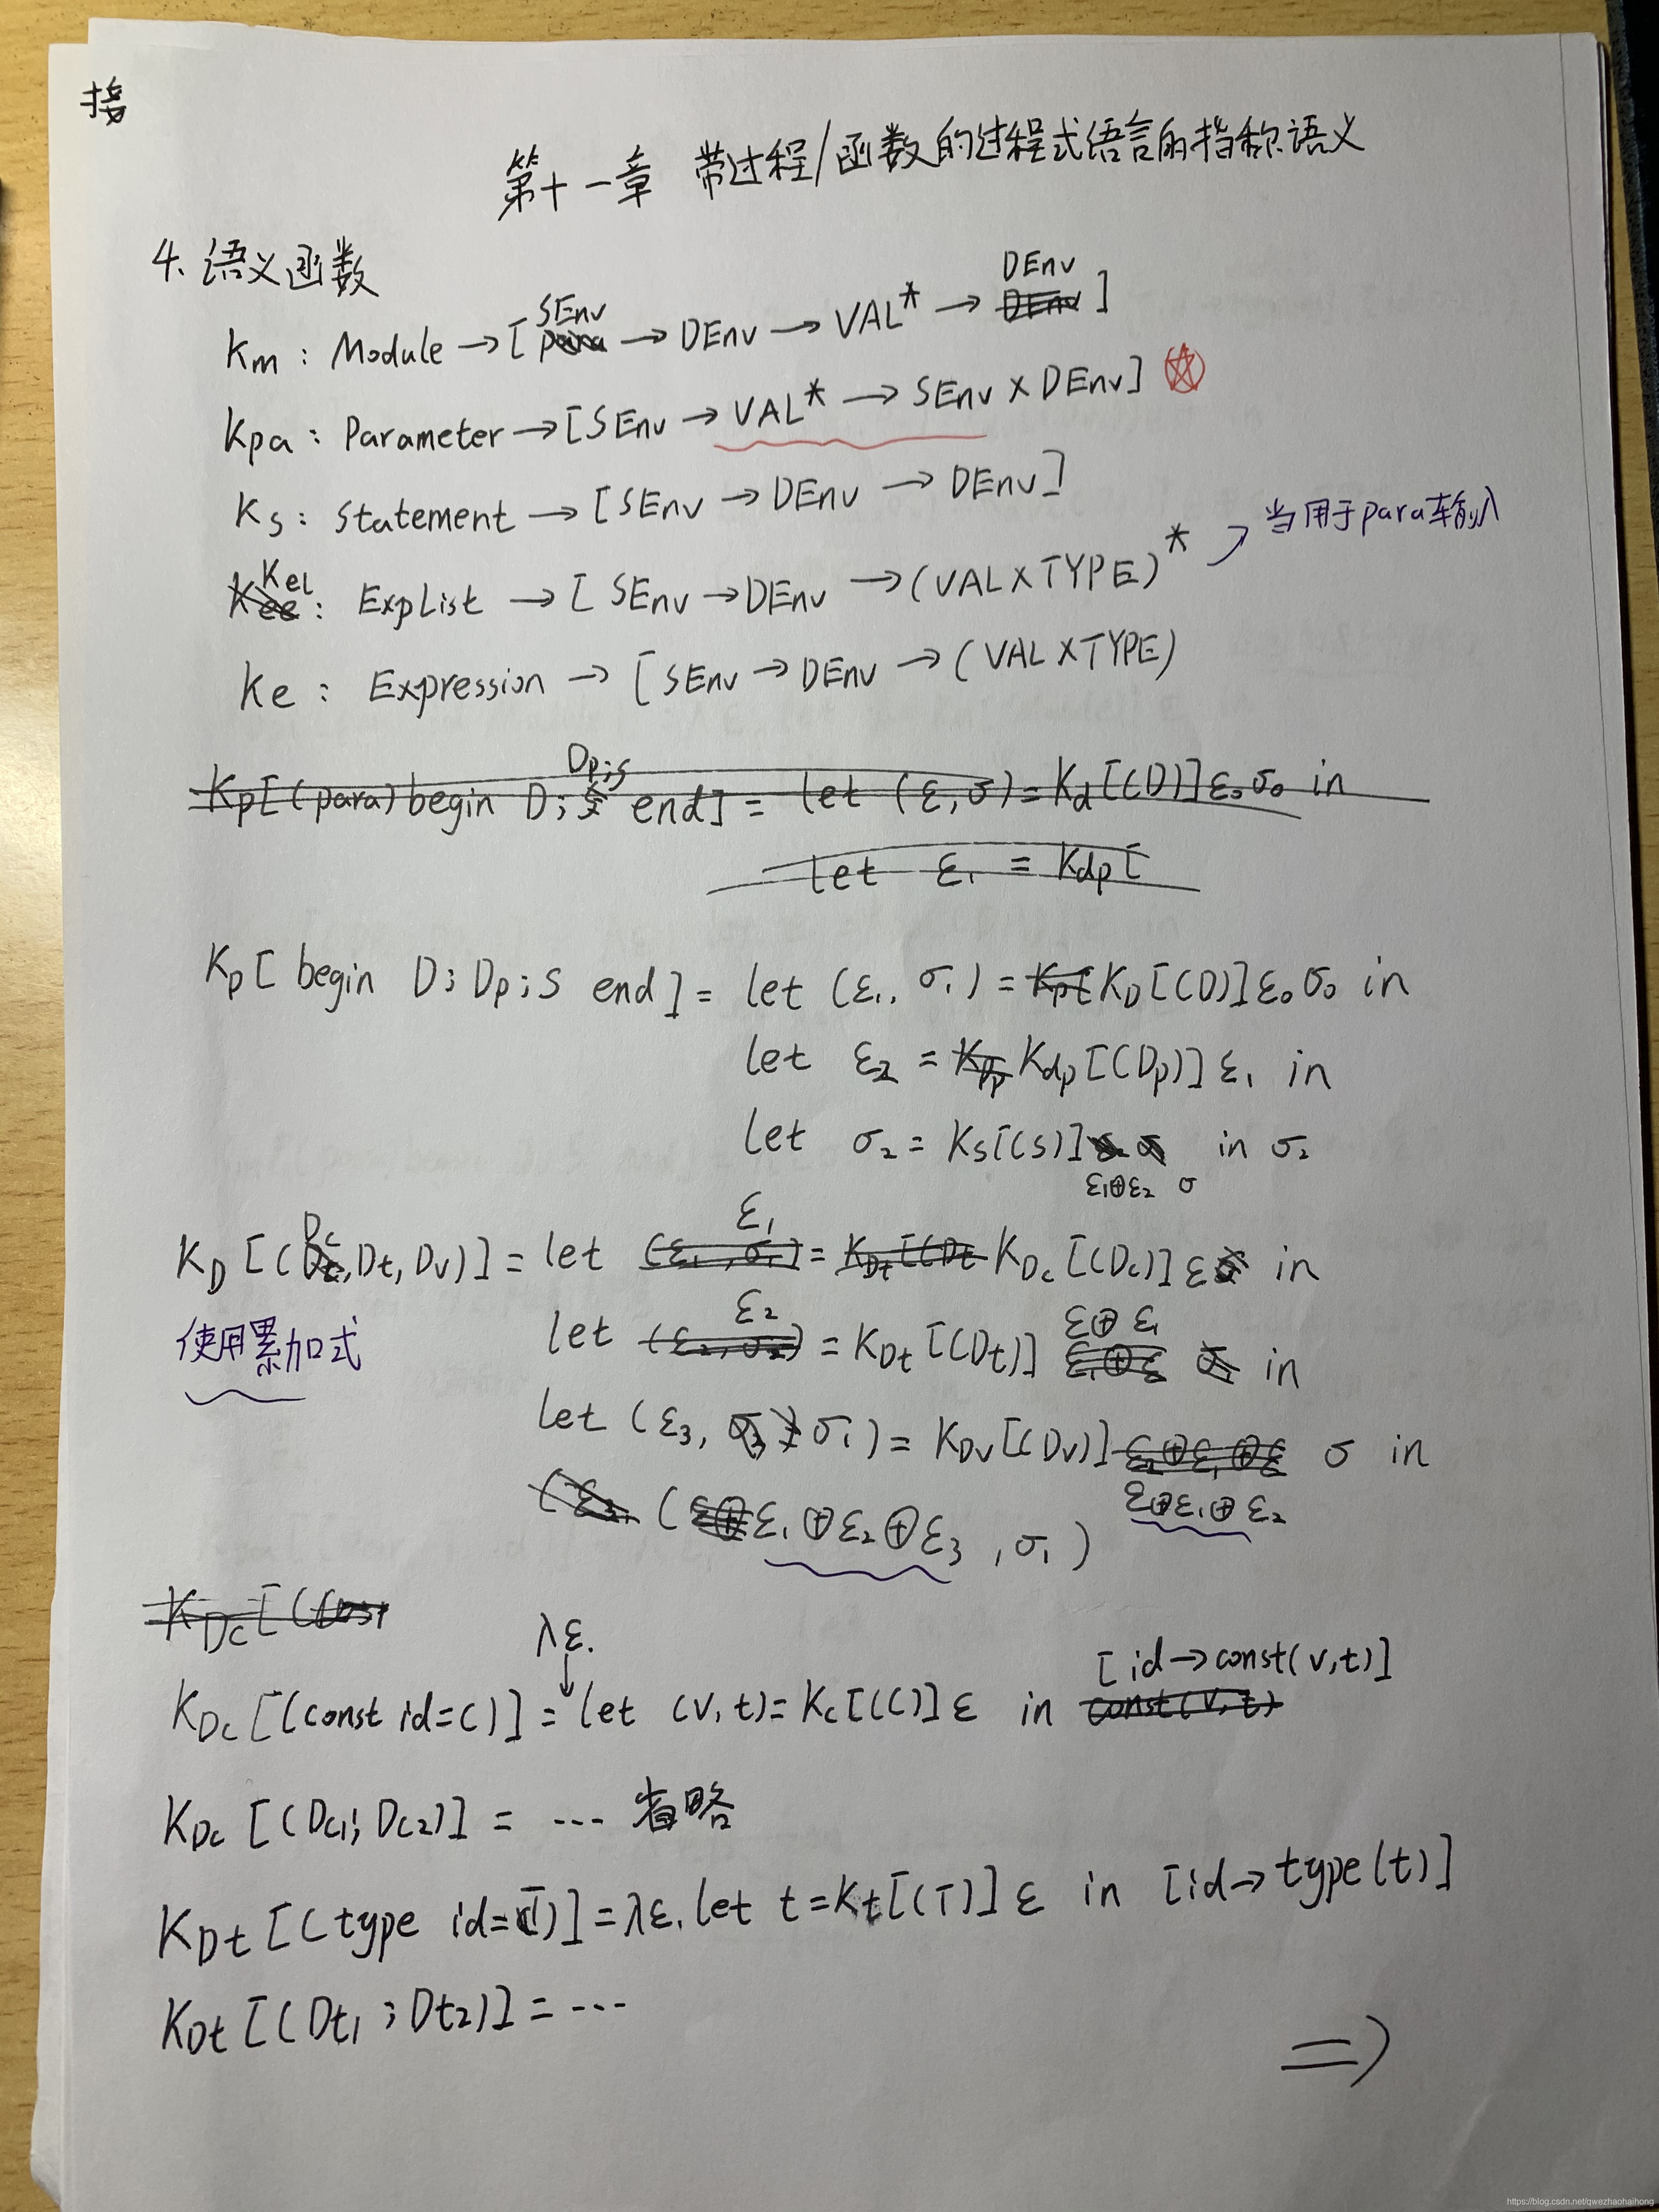 接
第十一章 带过程/函数的过程式语言的指称语义
4. 语义函数
Km : Module → [ SEnv → DEnv → VAL* → DEnv ]
Kpa : Parameter → [SEnv → VAL* → SEnv × DEnv]
Ks : Statement → [SEnv → DEnv → DEnv]
Kel : ExpList → [ SEnv → DEnv → (VAL×TYPE)* 当用于para输入
Ke : Expression → [ SEnv → DEnv → (VAL×TYPE)
Kp[(para) begin D; Dp;S end] = let (ε,σ) = Kd[(D)]ε₀σ₀ in
let ε₁ = Kdp[
Kp[ begin D; Dp; S end ] = let (ε₁, σ₁) = KD[(D)]ε₀σ₀ in
let ε₂ = Kdp[(Dp)]ε₁ in
let σ₂ = Ks[(S)] ε₁⊕ε₂ σ in σ₂
KD [(Dc,Dt,Dv)] = let ε₁ = KDc[(Dc)]ε in
使用累加式 let ε₂ = KDt[(Dt)] ε⊕ε₁ in
let (ε₃, σ₁) = KDv[(Dv)] ε⊕ε₁⊕ε₂ σ in
(ε₁⊕ε₂⊕ε₃, σ₁)
KDc[(Const
λε.
KDc[(const id=C)] = let (v,t)=Kc[(C)]ε in [id→const(v,t)]
KDc [(Dc1; Dc2)] = ... 省略
KDt[(type id=T)] = λε. let t=Kt[(T)]ε in [id→type(t)]
KDt[(Dt1 ; Dt2)] = ...
⇒
https://blog.csdn.net/qwezhaohaihong